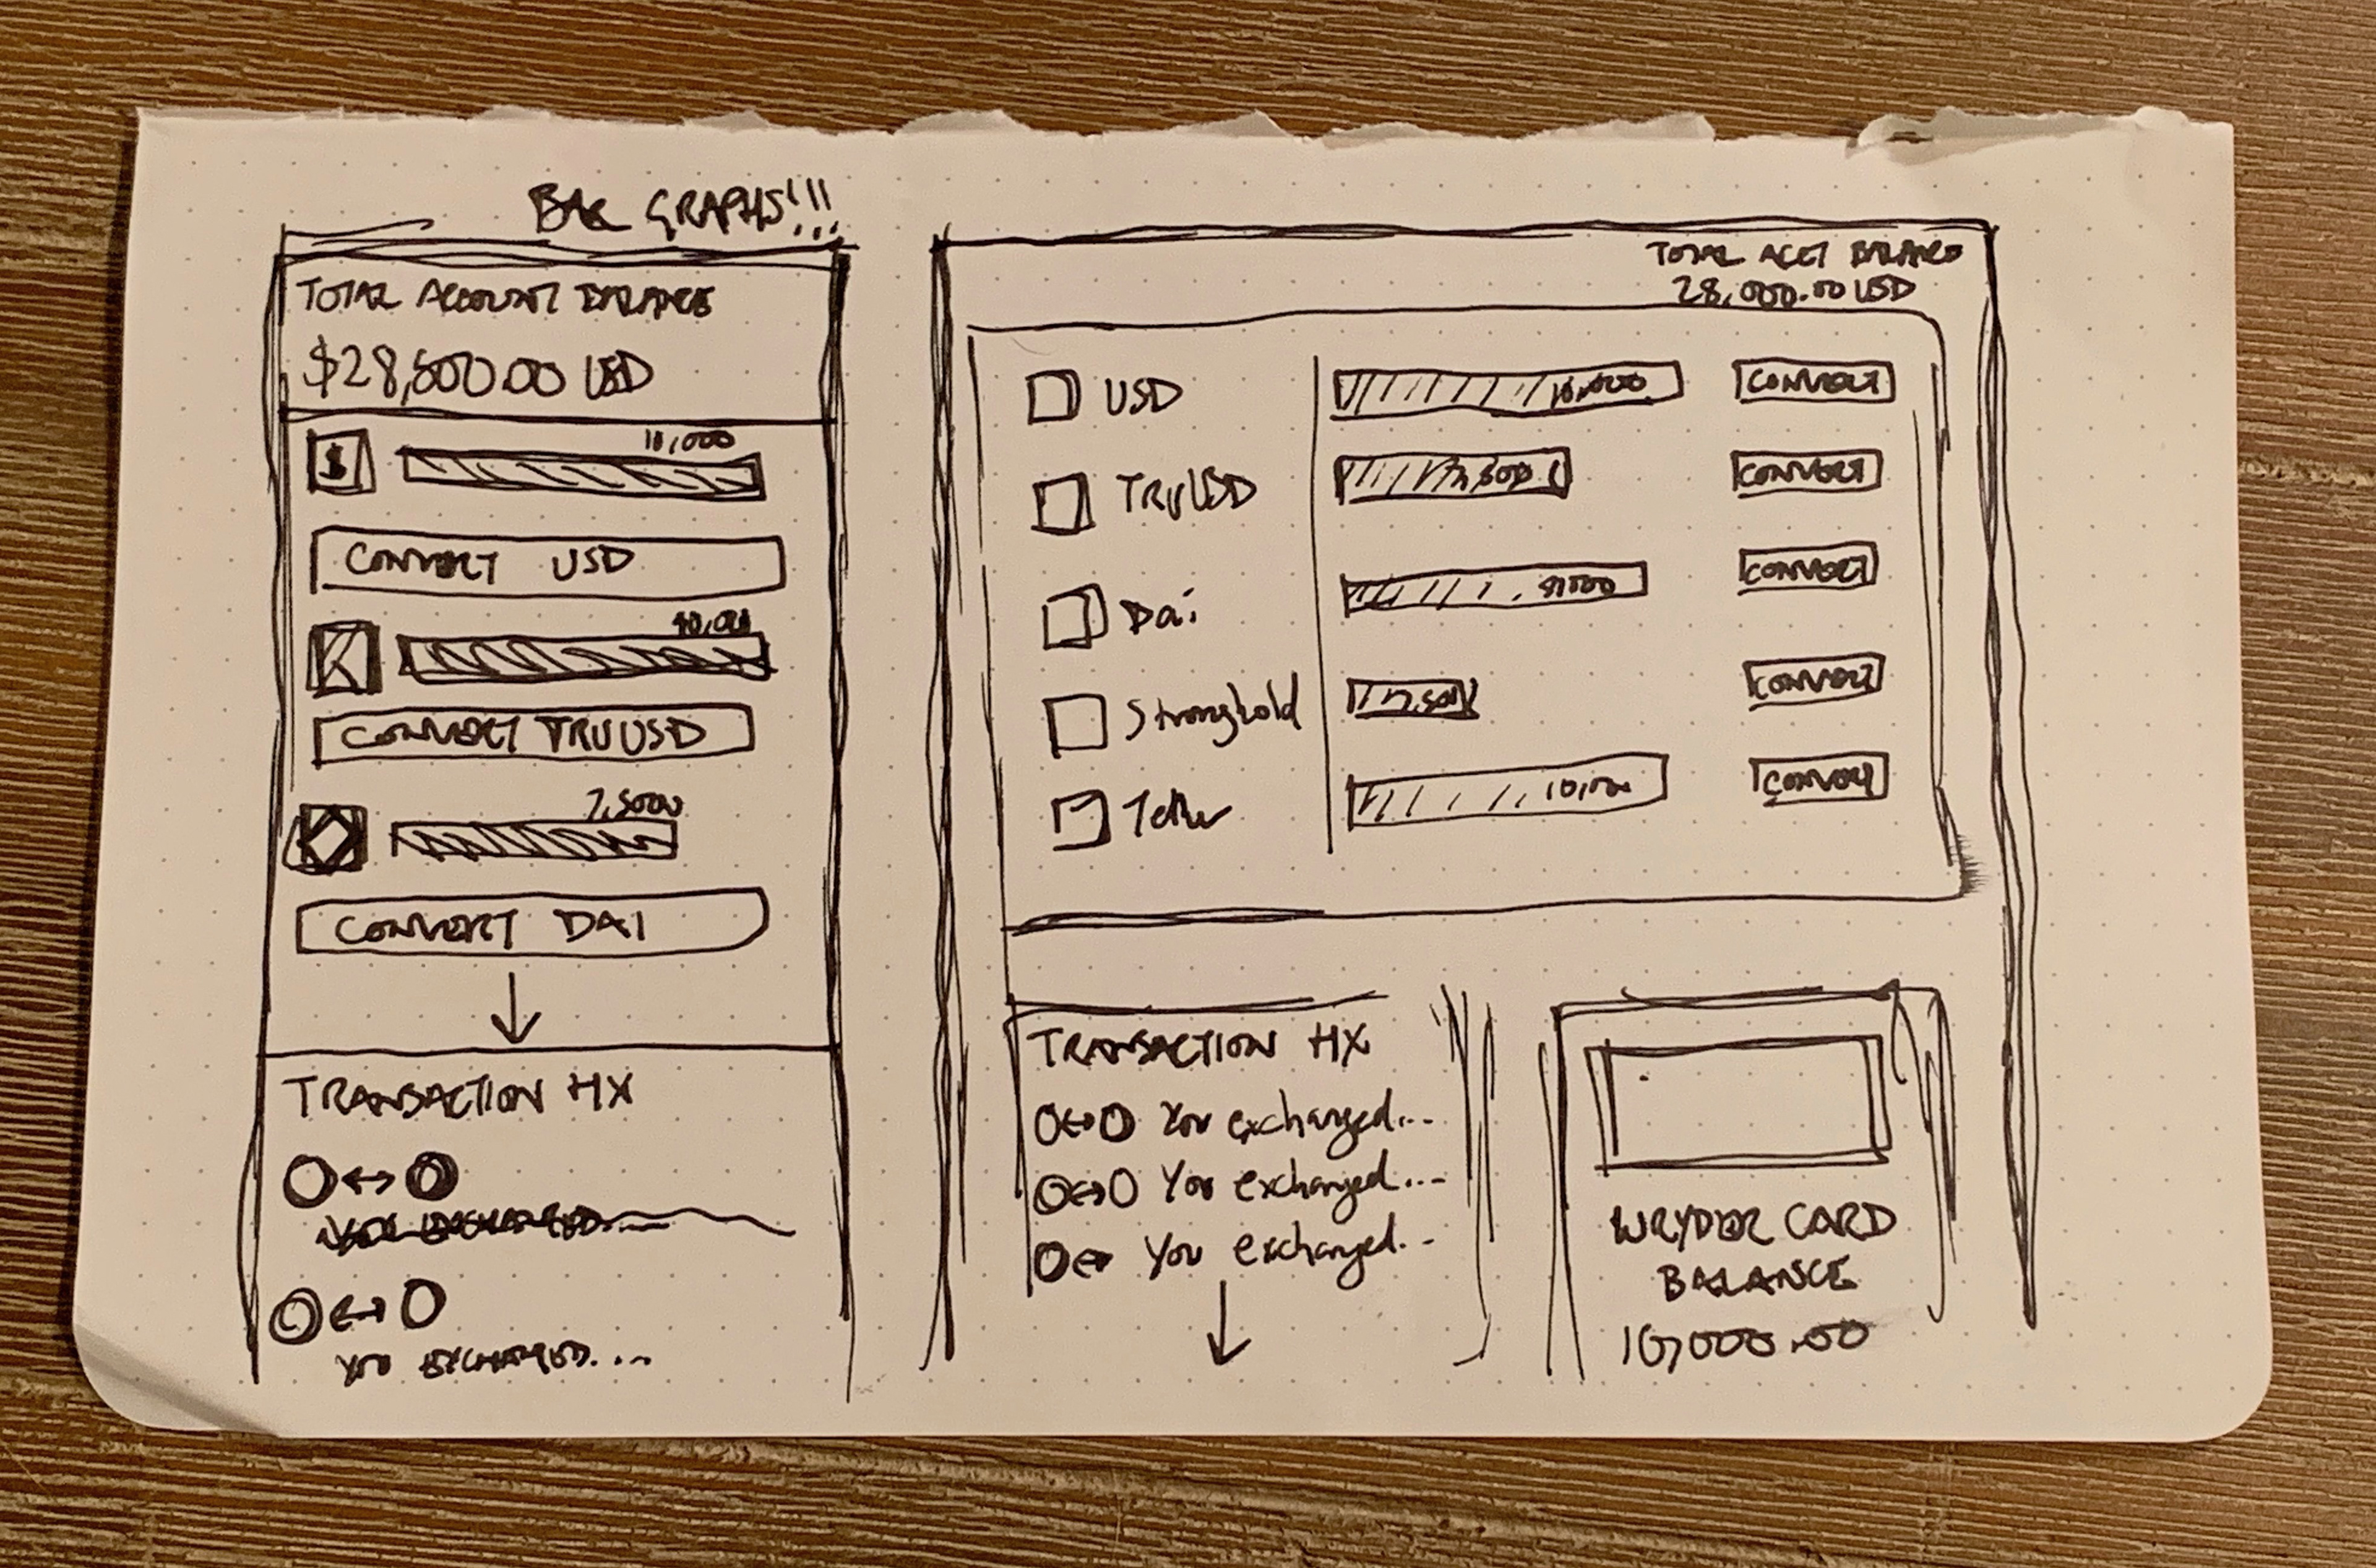 BAR GRAPHS!!!
TOTAL ACCOUNT BALANCE
$28,500.00 USD
$
10,000
CONVERT USD
CONVERT TRUUSD
7,500
CONVERT DAI
TRANSACTION HX
YOU EXCHANGED....
TOTAL ACCT BALANCE
28,000.00 USD
USD 10,000 CONVERT
TRUUSD CONVERT
Dai CONVERT
Stronghold CONVERT
Tether 10,000 CONVERT
TRANSACTION HX
You exchanged...
You exchanged...
You exchanged..
WRYDER CARD
BALANCE
10,000.00